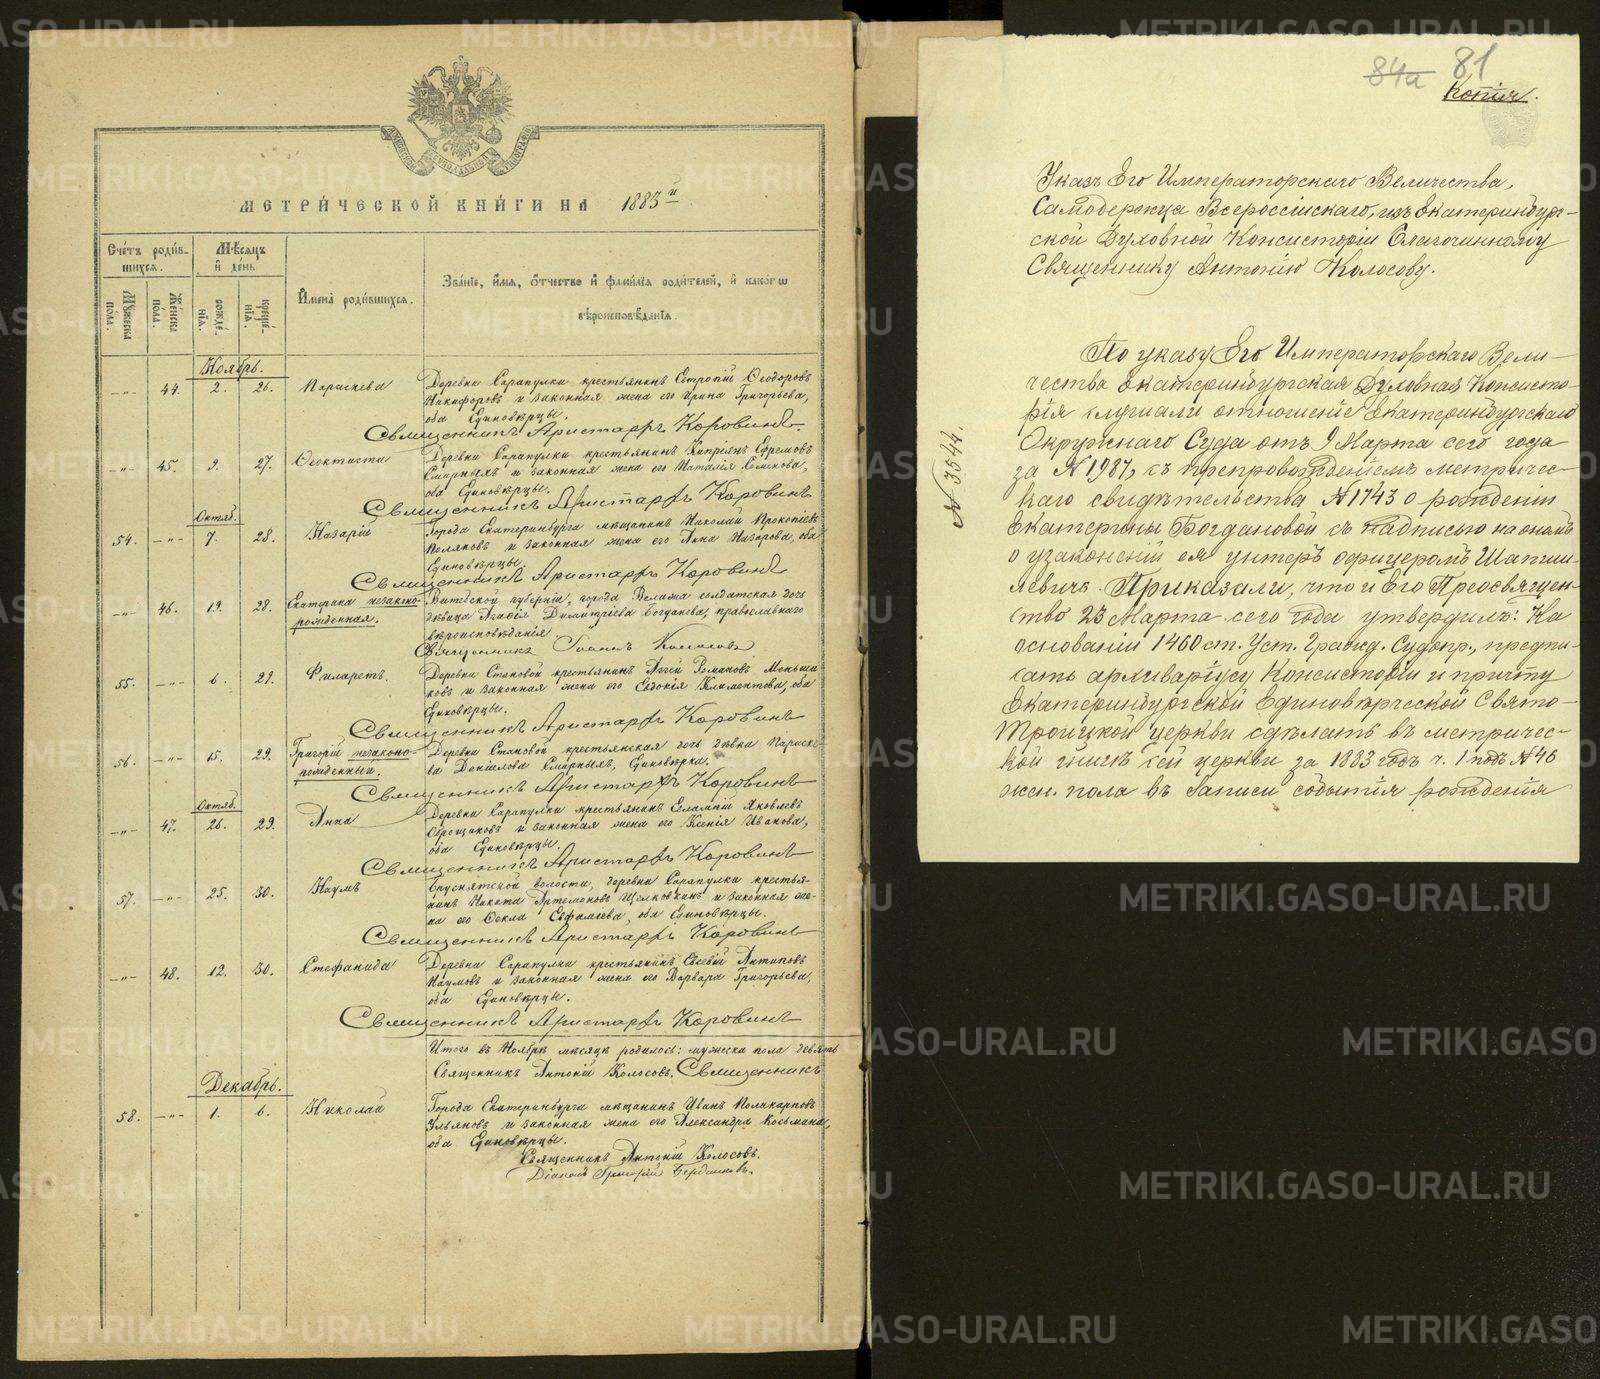 МЕТРИ́ЧЕСКОЙ КНИ́ГИ НА 1883й
Сче́тъ роди́в-
шихся.
Мѣ́сяцъ
и день
Мꙋжеска по́ла.
Же́нска по́ла.
рожде́-
нія.
креще́-
нія.
Имена̀ роди́вшихся.
Зва́ніе, и́мя, о́тчество и фами́лія роди́телей, и како́гѡ
вѣроисповѣ́данія.
Ноябрь.
-„- 44. 2. 26. Параскева Деревни Сарапулки крестьянинъ Евтропій Ѳеодоровъ
Никифоровъ и законная жена его Ирина Григорьева,
оба Единовѣрцы.
Священникъ Аристархъ Коровинъ.
-„- 45. 9. 27. Ѳеоктиста Деревни Сарапулки крестьянинъ Кипріянъ Ефремовъ
Смирныхъ и законная жена его Наталія Семенова,
оба Единовѣрцы.
Священникъ Аристархъ Коровинъ
Октяб.
54. -„- 7. 28. Назарій Города Екатеринбурга мѣщанинъ Николай Прокопіевъ
Поляковъ и законная жена его Анна Назарова, оба
Единовѣрцы.
Священникъ Аристархъ Коровинъ
-„- 46. 19. 28. Екатерина незаконо-
рожденная. Витебской губерніи, города Велижа солдатская дочь
дѣвица Агафія Димитріева Богданова, православнаго
вѣроисповѣданія.
Священникъ Іоаннъ Колосовъ
55. -„- 6. 29. Филаретъ. Деревни Становой крестьянинъ Аггей Романовъ Меньши-
ковъ и законная жена его Евдокія Климентова, оба
Единовѣрцы.
Священникъ Аристархъ Коровинъ
56. -„- 15. 29. Григорій незаконо-
рожденный. Деревни Становой крестьянская дочь дѣвка Параске-
ва Даніилова Смирныхъ, Единовѣрка.
Священникъ Аристархъ Коровинъ
Октяб.
-„- 47. 26. 29. Анна Деревни Сарапулки крестьянинъ Евлампій Яковлевъ
Оброщиковъ и законная жена его Ксенія Иванова,
оба Единовѣрцы.
Священникъ Аристархъ Коровинъ
57. -„- 25. 30. Наумъ Бруснятской волости, деревни Сарапулки крестья-
нинъ Никита Артемоновъ Щелковкинъ и законная же-
на его Ѳекла Евфаміева, оба Единовѣрцы.
Священникъ Аристархъ Коровинъ
-„- 48. 12. 30. Стефанида Деревни Сарапулки крестьянинъ Евсевій Антиповъ
Наумовъ и законная жена его Варвара Григорьева,
оба Единовѣрцы.
Священникъ Аристархъ Коровинъ
Итого въ Ноябрѣ мѣсяцѣ родилось: мужеска пола девять
Священникъ Антоній Колосовъ. Священникъ
Декабрь.
58. -„- 1. 6. Николай Города Екатеринбурга мѣщанинъ Иванъ Поликарповъ
Ульяновъ и законная жена его Александра Косьмина,
оба Единовѣрцы.
Священникъ Антоній Колосовъ.
Діаконъ Григорій Бердниковъ.
84а 81
Копія.
Указъ Его Императорскаго Величества,
Самодержца Всероссійскаго, изъ Екатеринбург-
ской Духовной Консисторіи Благочинному
Священнику Антонію Колосову.
№ 3544.
По указу Его Императорскаго Вели-
чества Екатеринбургская Духовная Консисто-
рія слушали отношеніе Екатеринбургскаго
Окружнаго Суда отъ 9 Марта сего года
за № 1987, съ препровожденіемъ метричес-
каго свидѣтельства № 1743 о рожденіи
Екатерины Богдановой съ надписью на ономъ
о узаконеніи ея унтеръ офицеромъ Шапши-
левичъ. Приказали, что и Его Преосвящен-
ство 23 Марта сего года утвердилъ: На
основаніи 1460 ст. Уст. Гражд. Судопр., предпи-
сать архиваріусу Консисторіи и причту
Екатеринбургской Единовѣрческой Свято-
Троицкой церкви сдѣлать въ метричес-
кой книгѣ сей церкви за 1883 годъ ч. 1 подъ № 46
жен. пола въ записи событія рожденія